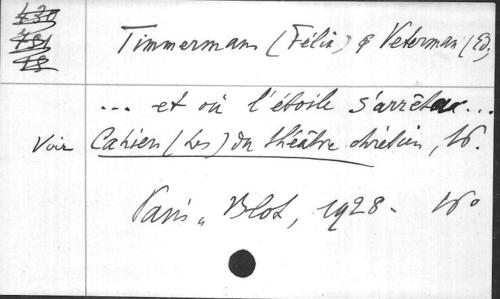 Timmermans (Félix) & Veterman (Ed.)
... et où l'étoile s'arrêta...
Voir Cahiers (Les) du théâtre chrétien, 16.
Paris, Blot, 1928. 16°